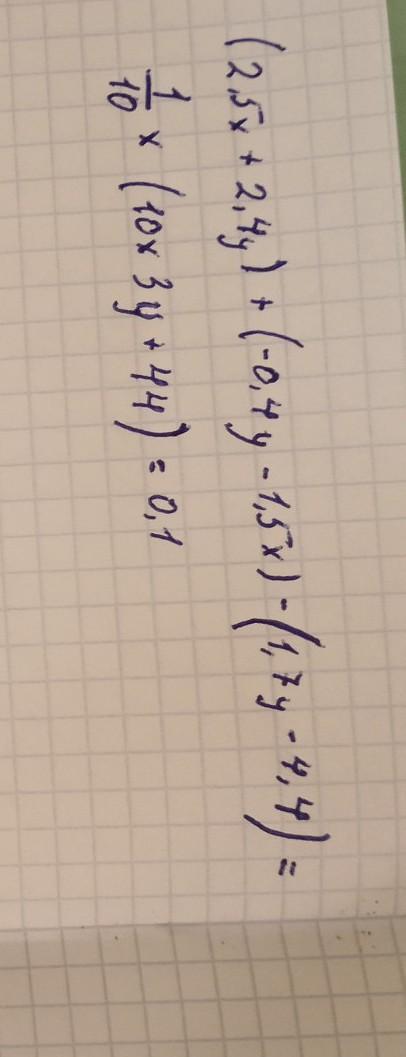 (2,5x + 2,4y) + (-0,4y - 1,5x) - (1,7y - 4,4) =
1/10 x (10x 3y + 44) = 0,1